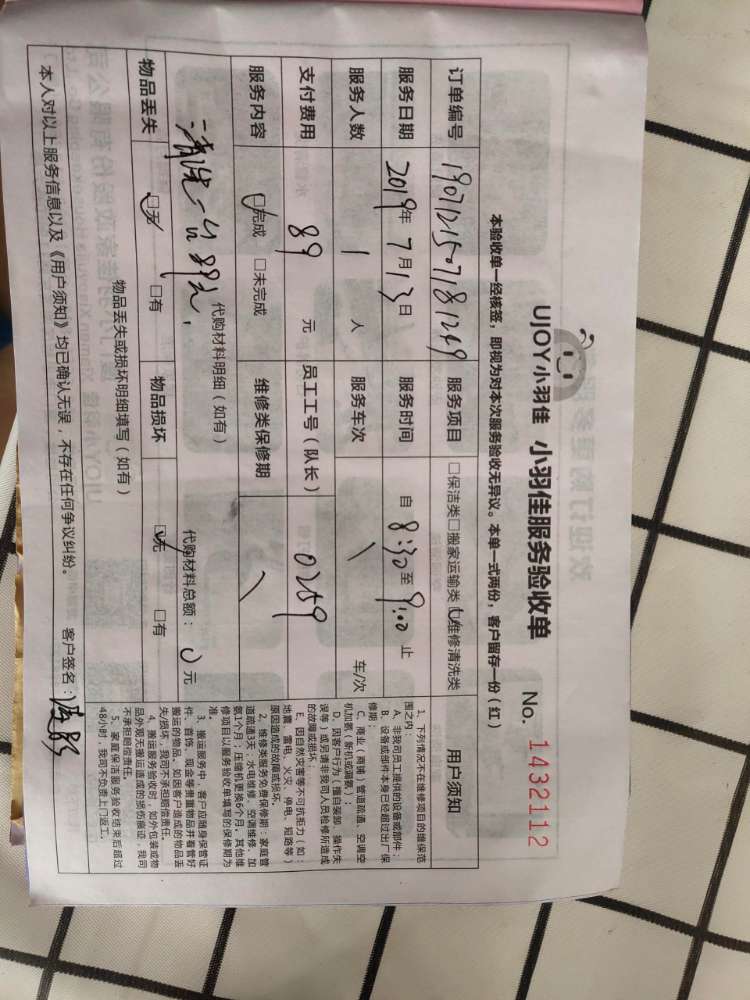 UJOY小羽佳 小羽佳服务验收单 No. 1432112
本验收单一经核签，即视为对本次服务验收无异议。本单一式两份，客户留存一份（红）
订单编号 1907121507181249 服务项目 □保洁类□搬家运输类□维修清洗类 用户须知
服务日期 2019年7月13日 服务时间 自8:30至9:00止
服务人数 1人 服务车次 \ 车/次
支付费用 89元 员工工号（队长） 0259
服务内容 □完成 □未完成 维修类保修期 \
代购材料明细（如有） 代购材料总额：0元
清洗一台89元，
物品丢失 □无 □有 物品损坏 □无 □有
物品丢失或损坏明细填写（如有）
本人对以上服务信息以及《用户须知》均已确认无误，不存在任何争议纠纷。 客户签名：
1、下列情况不在维修项目的维保范
围之内：
A、非我司员工提供的设备或部件；
B、设备或部件本身已经超过出厂保
修期；
C、商业（商铺）管道疏通、空调空
机加氨（新机或漏氨）；
D、因客户行为（擅自采卸、操作失
误等）或另请非我司人员检修所造成
的故障或损坏；
E、因自然灾害等不可抗拒力（如：
地震、雷电、火灾、停电、短路等）
原因造成的故障或损坏。
2、维修类服务免费保修期：家庭管
道疏通3天；水电维修、空调维修、加
氨1个月；压缩机更换6个月；其他维
修项目以服务验收单填写的保修期为
准。
3、搬运服务中，客户应随身保管证
件、首饰、现金等贵重物品并看管好
搬运的物品，如因客户造成的物品丢
失/损坏，我司不承担赔偿责任。
4、搬运服务验收时，如外包装或物
品外观无搬运造成的损伤痕迹，我司
不承担赔偿责任。
5、家庭保洁服务验收结束后超过
48小时，我司不负责上门返工。